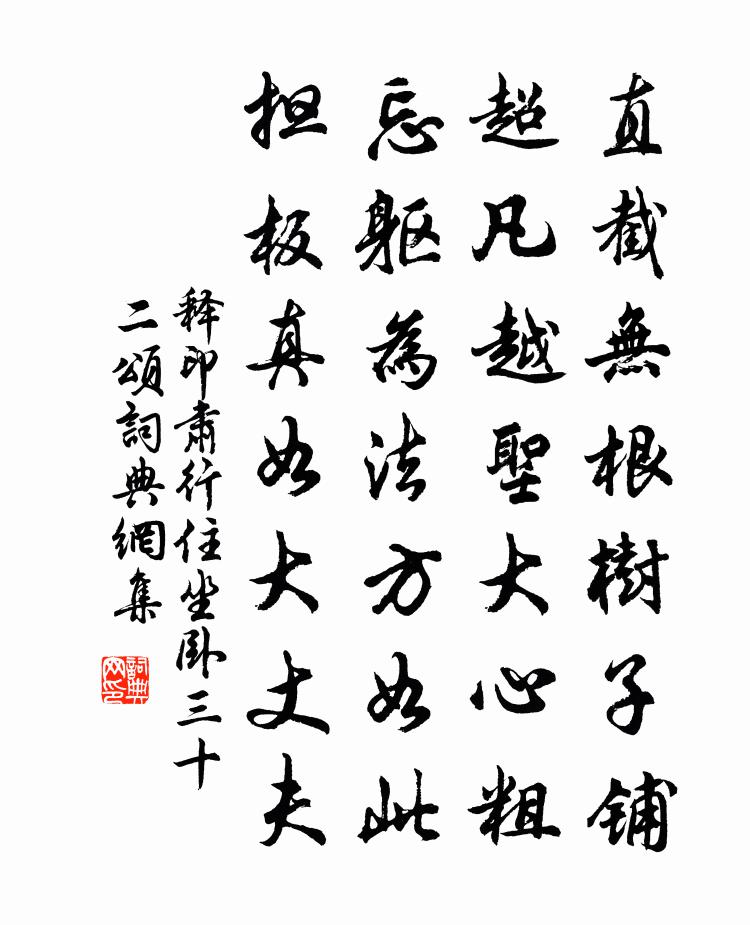 直截無根樹子鋪
超凡越聖大心粗
忘軀為法方如此
担板真如大丈夫
释印肃行住坐卧三十
二頌詞典網集
詞典网印